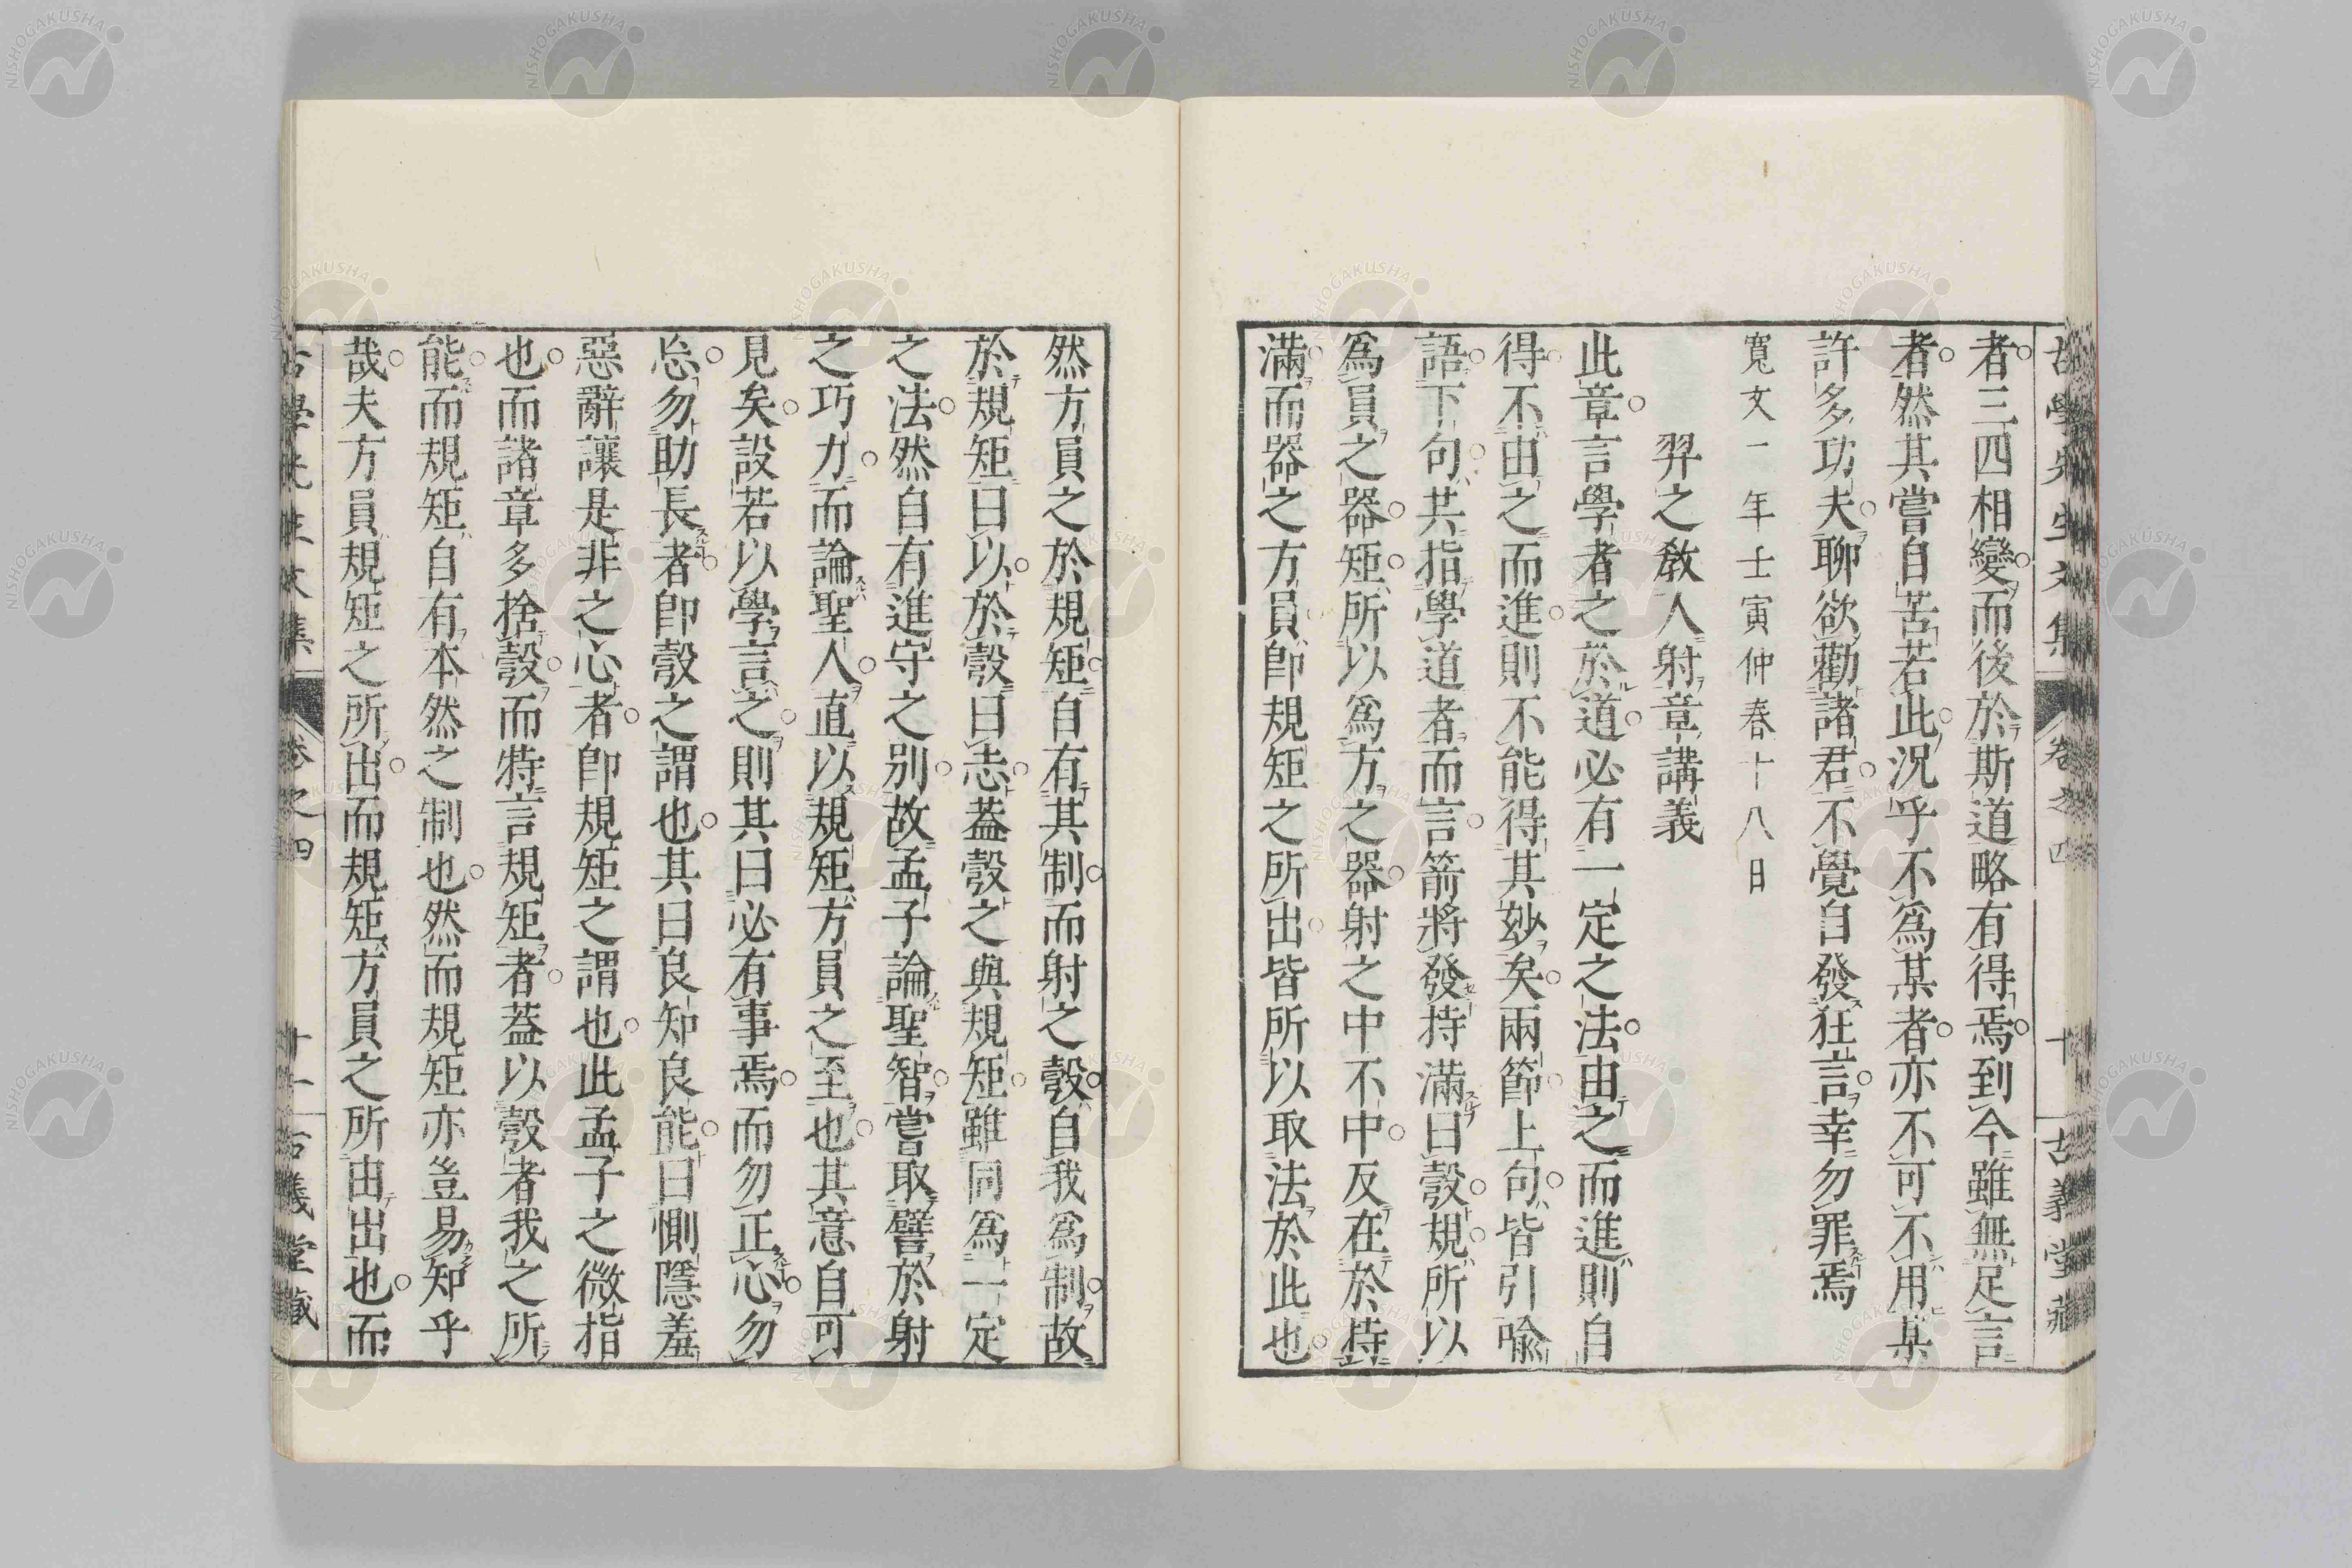 古學先生文集 卷之四 十 古義堂藏
者三四相變而後於斯道略有得焉到今雖無足言
者然其嘗自苦若此況乎不爲某者亦不可不用某
許多功夫聊欲勸諸君不覺自發狂言幸勿罪焉
寬文二年壬寅仲春十八日
羿之敎人射章講義
此章言學者之於道必有一定之法由之而進則自
得不由之而進則不能得其妙矣兩節上句皆引喩
語下句共指學道者而言箭將發持滿曰彀規所以
爲員之器矩所以爲方之器射之中不中反在於持
滿而器之方員卽規矩之所出皆所以取法於此也
然方員之於規矩自有其制而射之彀自我爲制故
於規矩曰以於彀曰志葢彀之與規矩雖同爲一定
之法然自有進守之別故孟子論聖智嘗取譬於射
之巧力而論聖人直以規矩方員之至也其意自可
見矣設若以學言之則其曰必有事焉而勿正心勿
忘勿助長者卽彀之謂也其曰良知良能曰惻隱羞
惡辭讓是非之心者卽規矩之謂也此孟子之微指
也而諸章多捨彀而特言規矩者葢以彀者我之所
能而規矩自有本然之制也然而規矩亦豈易知乎
哉夫方員規矩之所出而規矩方員之所由出也而
古學先生文集 卷之四 十一 古義堂藏